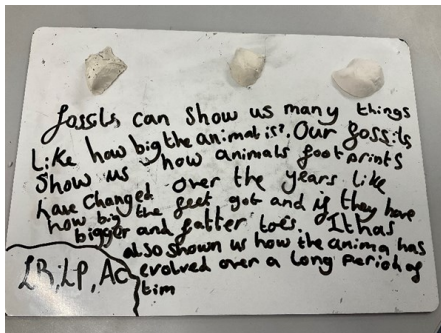 fossils, can show us many things
like how big the animal is?. Our fossils
show us how animals footprints
have changed over the years like
how big the feet got and if they have
bigger and fatter toes. It has
also shown us how the anima has
evolved over a long perioh of
tim
LB, LP, AC